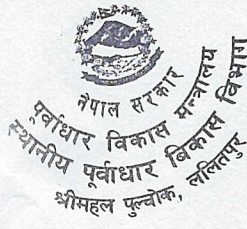 नेपाल सरकार
पूर्वाधार विकास मन्त्रालय
स्थानीय पूर्वाधार विकास विभाग
श्रीमहल पुल्चोक, ललितपुर